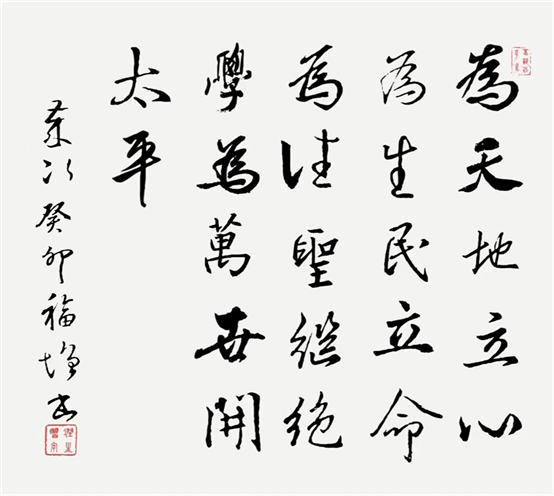 為天地立心
為生民立命
為往聖継絶
學為萬世開
太平
歲次癸卯福增書